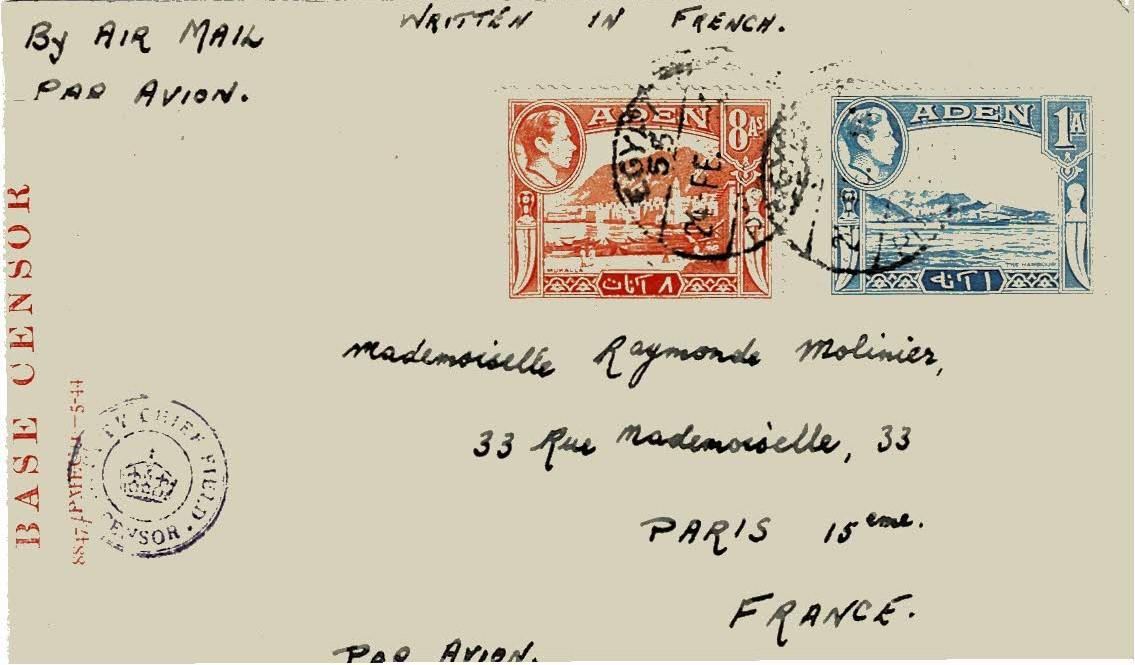 WRITTEN IN FRENCH.
By AIR MAIL
PAR AVION.
ADEN 8AS
MUKALLA
٨ آنات
ADEN 1A
THE HARBOUR
١ آنه
EGYPT
24 FE.
BASE CENSOR
5-44
BY CHIEF FIELD CENSOR
Mademoiselle Raymonde Molinier,
33 Rue Mademoiselle, 33
PARIS 15eme.
FRANCE.
PAR AVION.